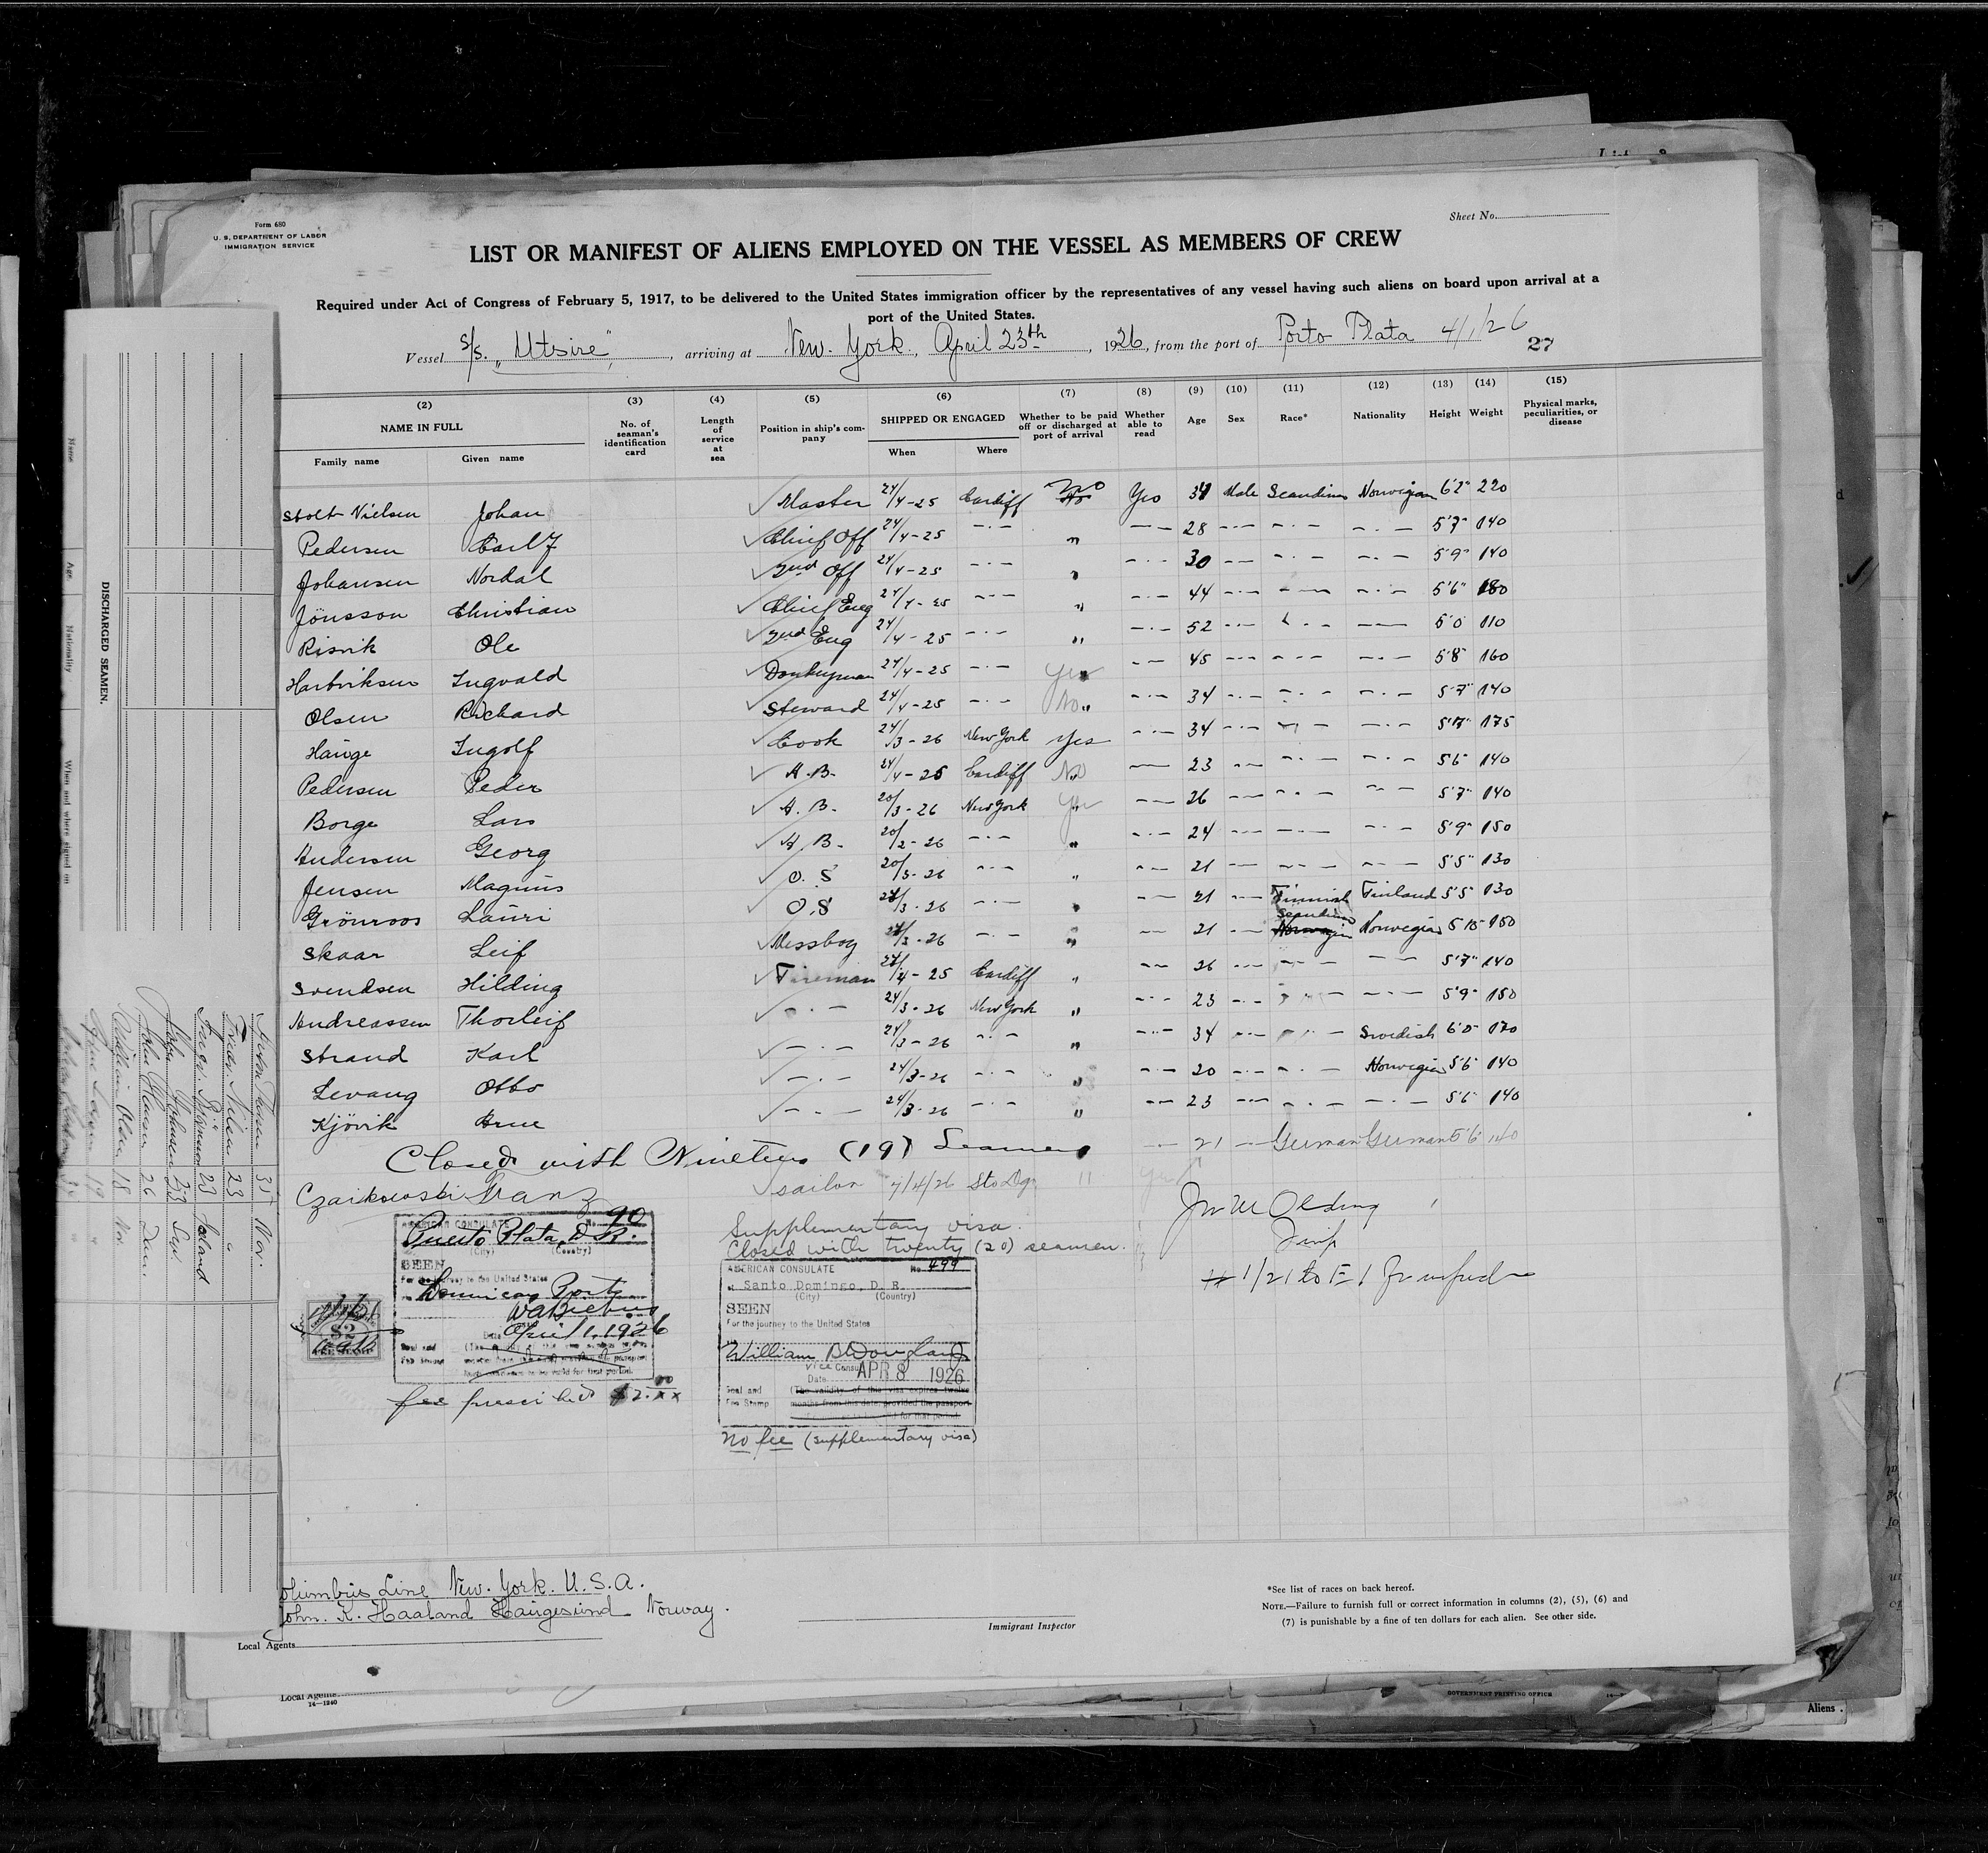 Form 680
U. S. DEPARTMENT OF LABOR
IMMIGRATION SERVICE
Sheet No.
LIST OR MANIFEST OF ALIENS EMPLOYED ON THE VESSEL AS MEMBERS OF CREW
Required under Act of Congress of February 5, 1917, to be delivered to the United States immigration officer by the representatives of any vessel having such aliens on board upon arrival at a
port of the United States.
Vessel S/S. "Utsire", arriving at New. York., April 23th, 1926, from the port of Porto Plata 4/1/26
27
(2) (3) (4) (5) (6) (7) (8) (9) (10) (11) (12) (13) (14) (15)
NAME IN FULL No. of seaman's identification card Length of service at sea Position in ship's company SHIPPED OR ENGAGED Whether to be paid off or discharged at port of arrival Whether able to read Age Sex Race* Nationality Height Weight Physical marks, peculiarities, or disease
Family name Given name When Where
Stolt Nielsen Johan Master 24/4-25 Cardiff No Yes Male Scandinav Norwegian 6'2" 220
Pedersen Carl J Chief Off 24/4-25 -·- " -·- 28 -·- -·- -·- 5'7" 140
Johansen Nordal 2nd Off 24/4-25 -·- " -·- 30 -·- -·- -·- 5'9" 140
Jönsson Christian Chief Eng 24/4-25 -·- " -·- 44 -·- -·- -·- 5'6" 180
Risvik Ole 2nd Eng 24/4-25 -·- " -·- 52 -·- -·- -·- 5'0 110
Hartviksen Ingvald Donkeyman 24/4-25 -·- Yes -·- 45 -·- -·- -·- 5'8" 160
Olsen Richard Steward 24/4-25 -·- No " -·- 34 -·- -·- -·- 5'7" 140
Hauge Ingolf Cook 24/3-26 New York Yes -·- 34 -·- -·- -·- 175
Pedersen Peder A.B. 24/4-25 Cardiff No -·- 23 -·- -·- -·- 5'6" 140
Borge Lars A.B. 20/3-26 New York Yes -·- 26 -·- -·- -·- 5'7" 140
Andersen Georg A.B. 20/2-26 -·- " -·- 24 -·- -·- -·- 5'9" 150
Jensen Magnus O.S 20/3-26 -·- " -·- 21 -·- -·- -·- 5'5" 130
Grönroos Lauri O.S 24/3-26 -·- " -·- 21 -·- Finnish Finland 5'5" 130
Skaar Leif Messboy 24/3-26 -·- " -·- 21 -·- Scandinav Norwegian 150
Svendsen Hilding Fireman 24/4-25 Cardiff " -·- 26 -·- -·- -·- 5'7" 140
Andreassen Thorleif -·- 24/3-26 New York " -·- 23 -·- -·- -·- 5'9" 150
Strand Karl -·- 24/3-26 -·- " -·- 34 -·- -·- Swedish 6'0" 170
Levang Otto -·- 24/3-26 -·- " -·- 20 -·- -·- Norwegian 5'6" 140
Kjövik Arne -·- 24/3-26 -·- " -·- 23 -·- -·- -·- 5'6" 140
Closed with Nineteen (19) Seamen
Czaikowski Franz sailor 7/4/26 Sto Dgo " Yes 21 - German German 5'6" 140
AMERICAN CONSULATE No. 90
Puerto Plata, D.R.
(City) (Country)
SEEN
For the journey to the United States
Dominican Ports
Date April 1, 1926
Seal and
Fee Stamp
$2
fee prescribed $2.00
Supplementary visa.
Closed with twenty (20) seamen.
AMERICAN CONSULATE No. 499
at Santo Domingo, D. R.
(City) (Country)
SEEN
For the journey to the United States
William A
Vice Consul
Date APR 8 1926
Seal and
Fee Stamp
(The validity of this visa expires twelve
months from this date, provided the passport
No fee (supplementary visa)
Jn M Olding
Insp
Columbus Line New. York. U.S.A.
John. K. Haaland Haugesund Norway.
Local Agents
Immigrant Inspector
*See list of races on back hereof.
NOTE.—Failure to furnish full or correct information in columns (2), (5), (6) and
(7) is punishable by a fine of ten dollars for each alien. See other side.
Local Agents
14—1240
GOVERNMENT PRINTING OFFICE
Aliens
DISCHARGED SEAMEN.
Name Age Nationality When and where signed on
31 Nor.
Fredr. Nilsen 23 "
23 Island
John Johnsen 23
John Hansen 26 Dan.
William Olsen 18 Nor.
19 "